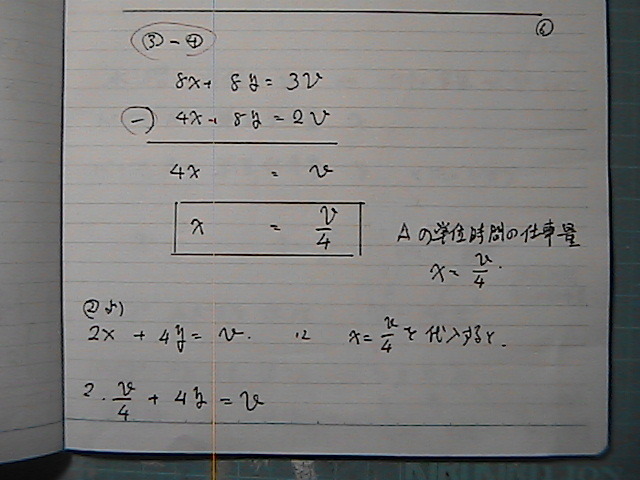 ⑥
③ - ④
8x + 8y = 3v
⊖ 4x + 8y = 2v
4x = v
x = v/4
Aの単位時間の仕事量
x = v/4.
②より
2x + 4y = v. に x = v/4 を代入すると.
2・v/4 + 4y = v